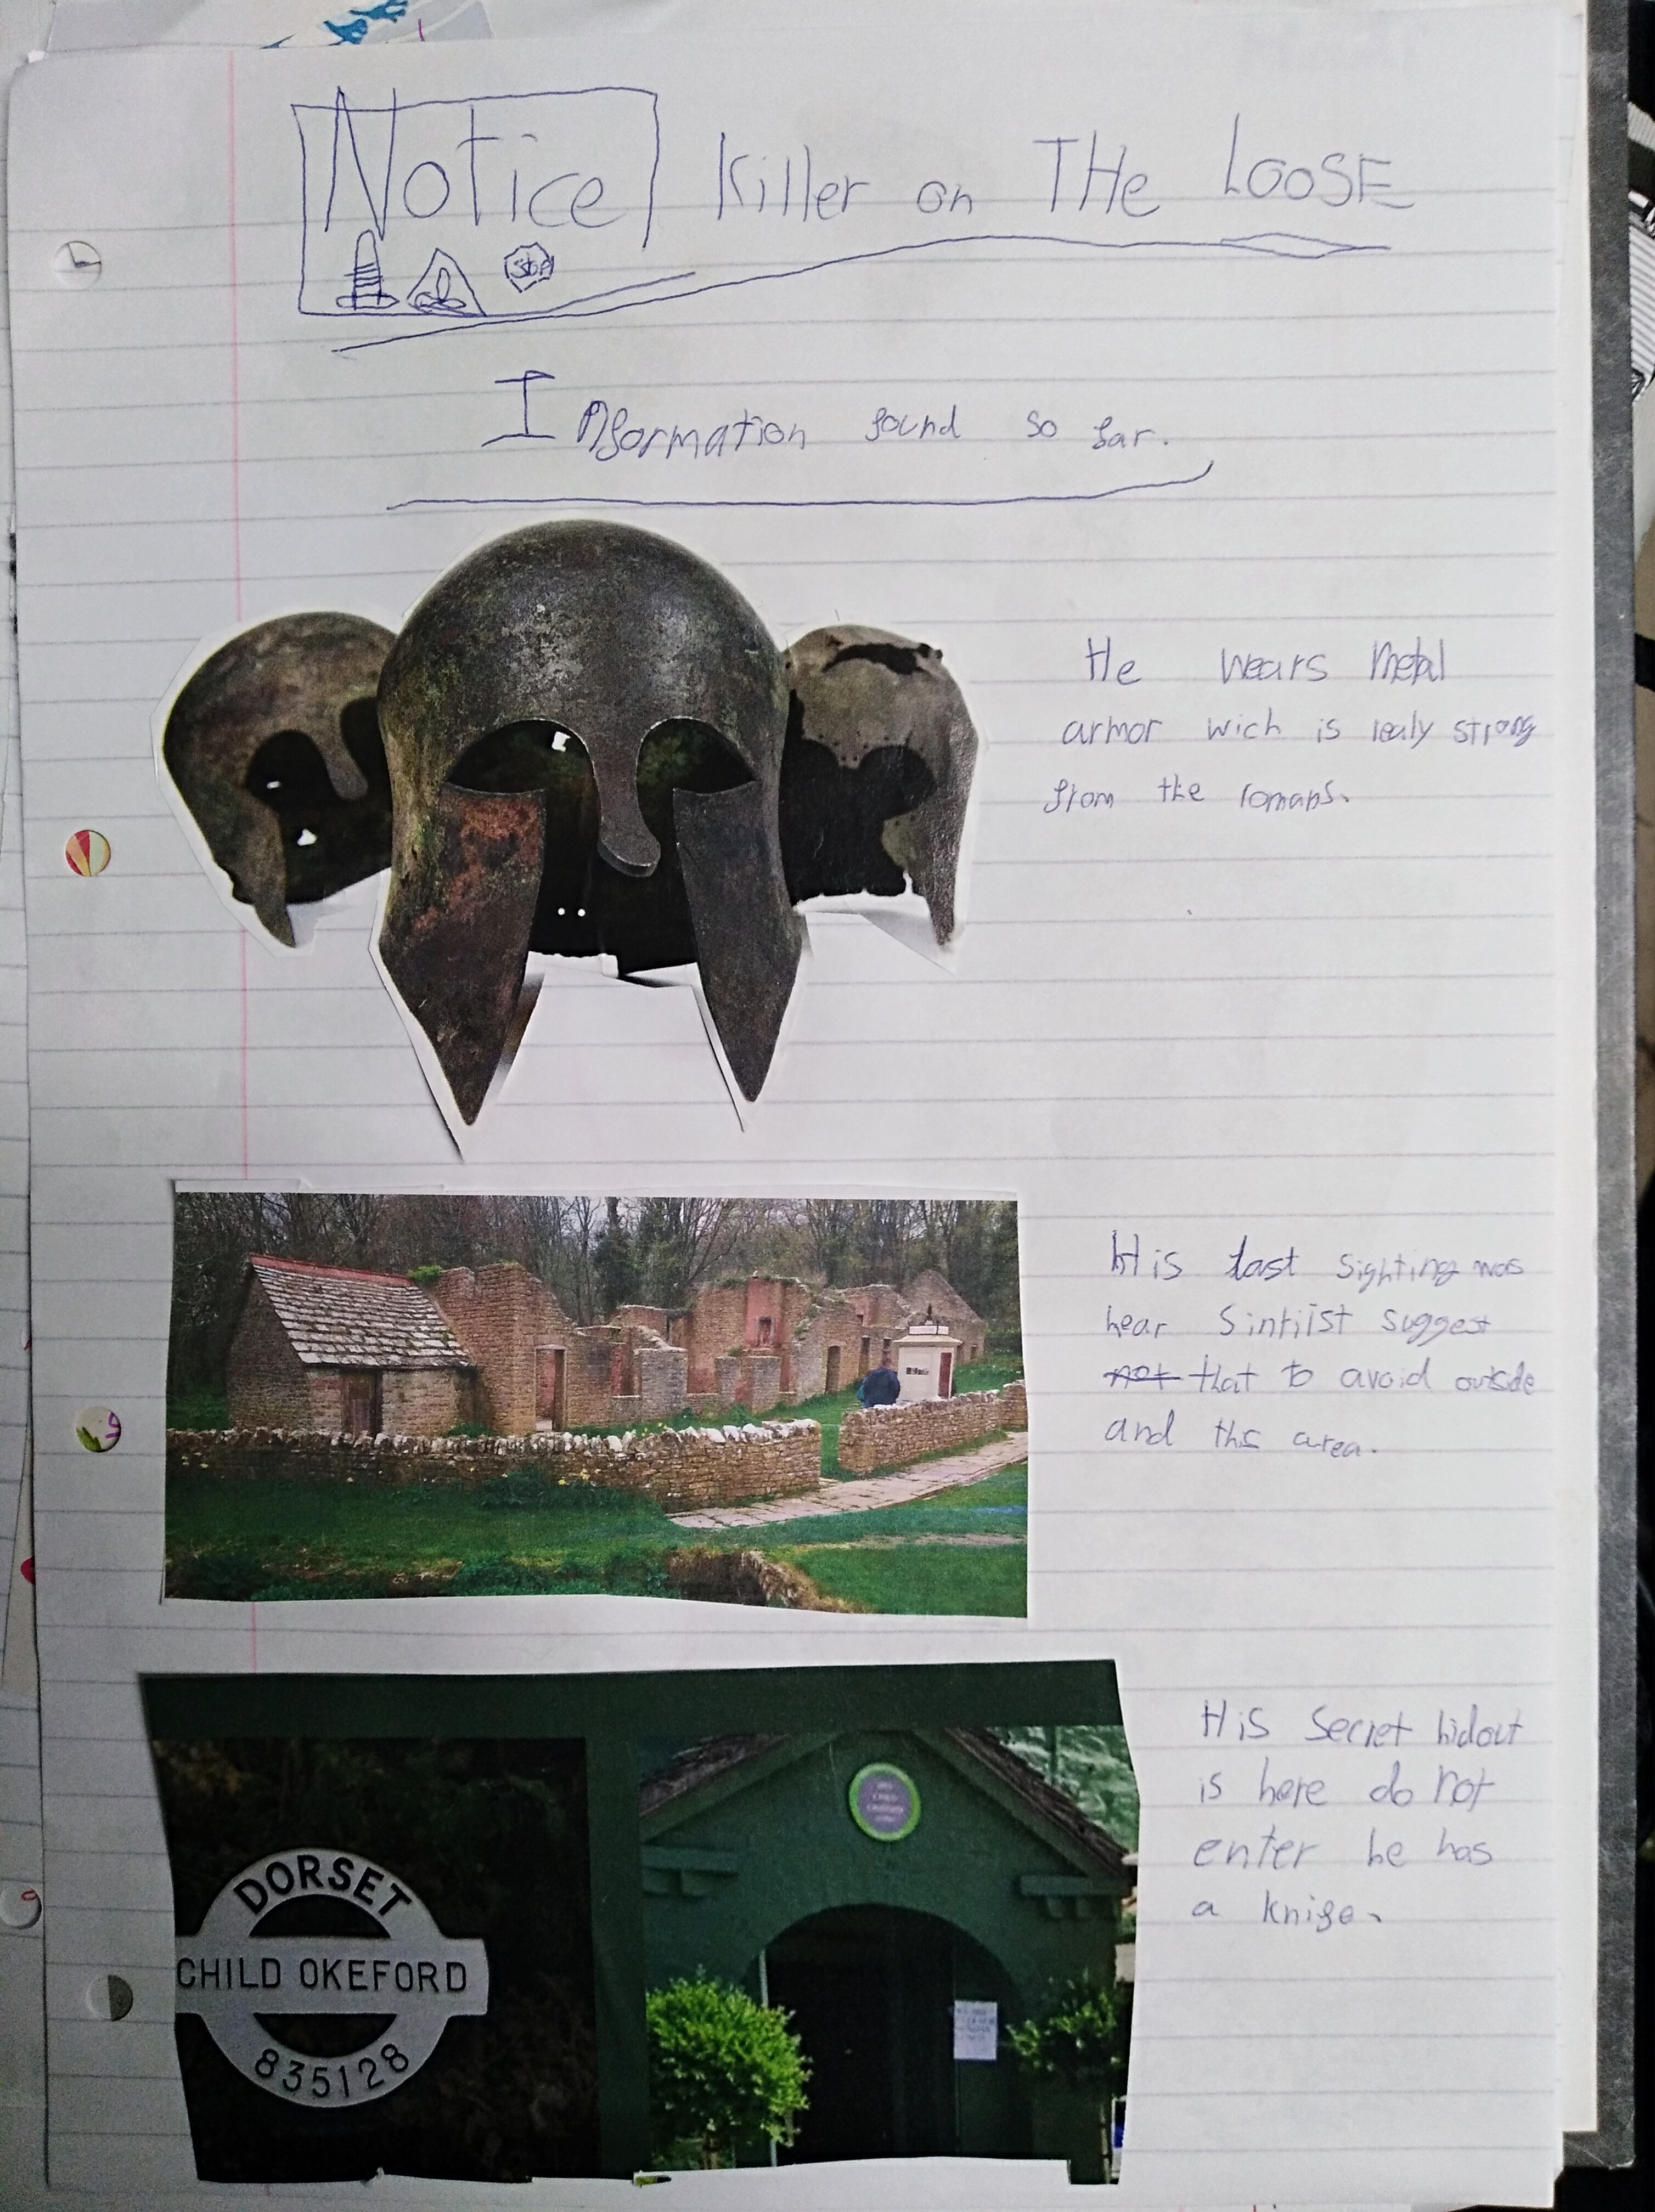 Notice Killer on THe LOOSE
Information found so far.
He wears Metal
armor wich is realy strong
from the romans.
His last sighting was
hear Sintiist suggest
not that to avoid outside
and this area.
DORSET
CHILD OKEFORD
835128
His Secret hidout
is here do not
enter he has
a knife.